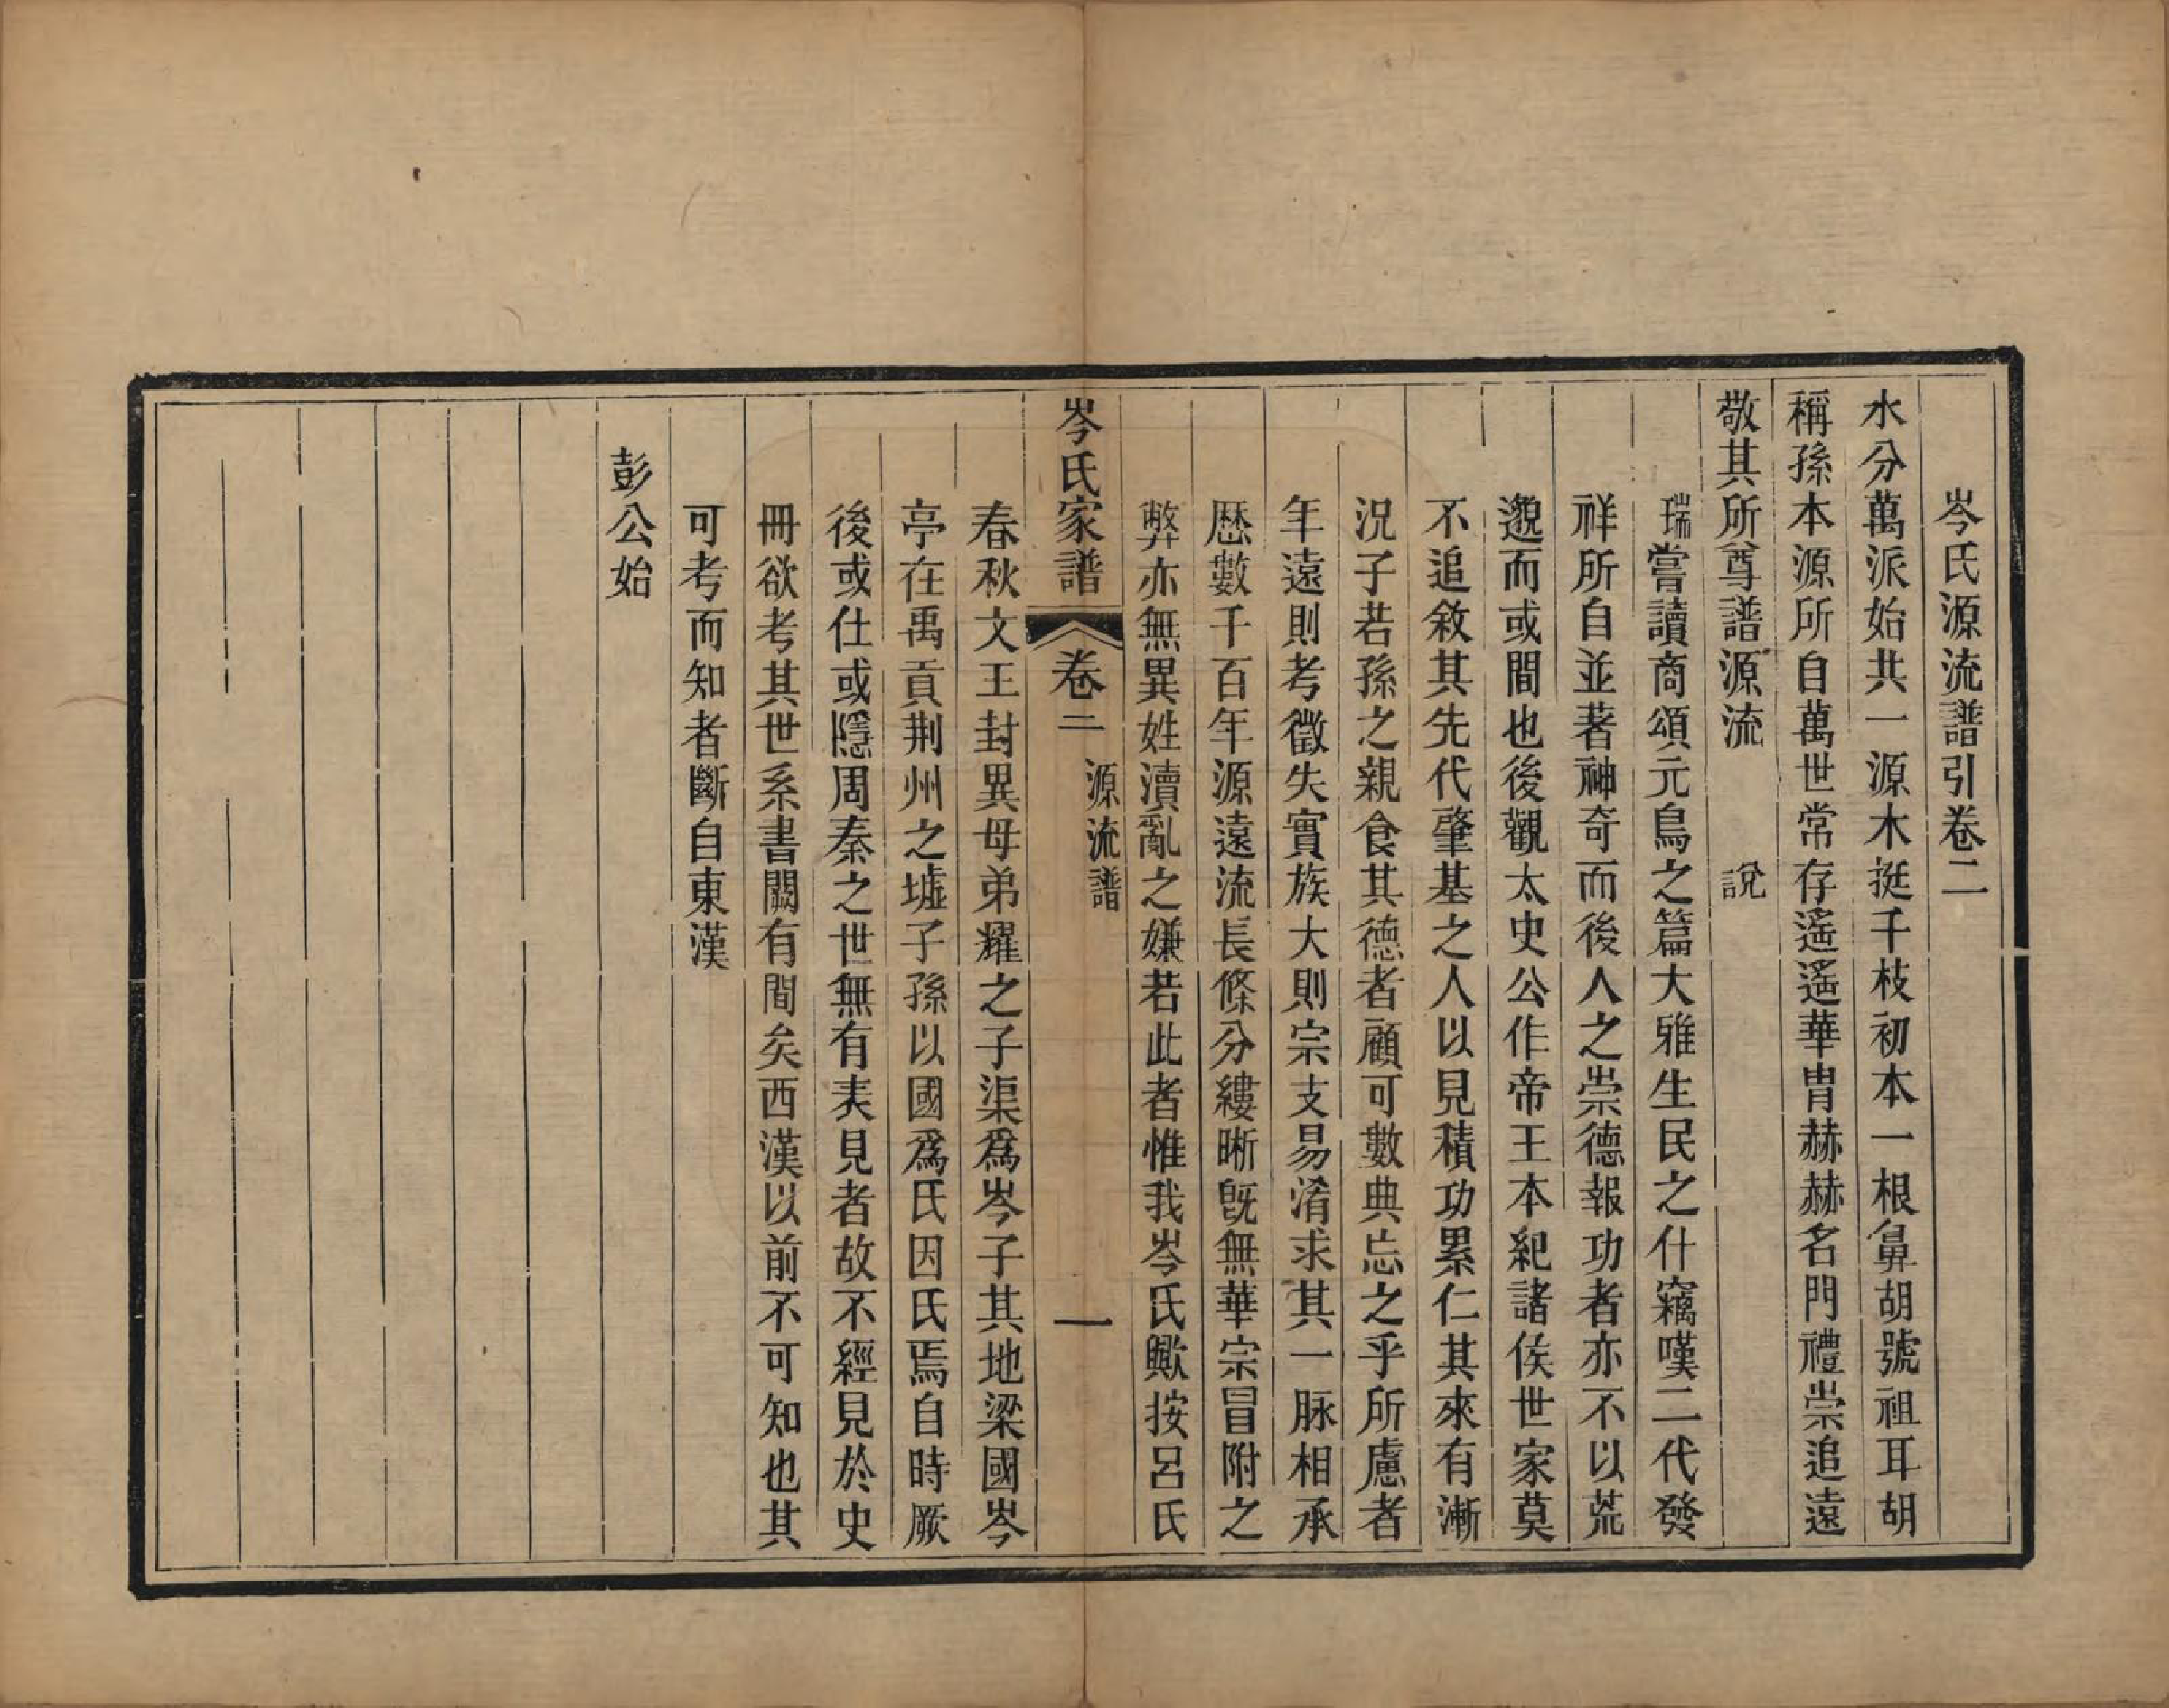 岑氏源流譜引卷二
水分萬派始共一源木挺千枝初本一根鼻胡號祖耳胡
稱孫本源所自萬世常存遙遙華胄赫赫名門禮崇追遠
敬其所尊譜源流 說
瑞嘗讀商頌元鳥之篇大雅生民之什竊嘆二代發
祥所自並著神奇而後人之崇德報功者亦不以荒
邈而或間也後觀太史公作帝王本紀諸侯世家莫
不追敘其先代肇基之人以見積功累仁其來有漸
況子若孫之親食其德者顧可數典忘之乎所慮者
年遠則考徵失實族大則宗支易淆求其一脉相承
歷數千百年源遠流長條分縷晰旣無華宗冒附之
弊亦無異姓瀆亂之嫌若此者惟我岑氏歟按呂氏
岑氏家譜 卷二 源流譜 一
春秋文王封異母弟耀之子渠爲岑子其地梁國岑
亭在禹貢荆州之墟子孫以國爲氏因氏焉自時厥
後或仕或隱周秦之世無有表見者故不經見於史
冊欲考其世系書闕有間矣西漢以前不可知也其
可考而知者斷自東漢
彭公始